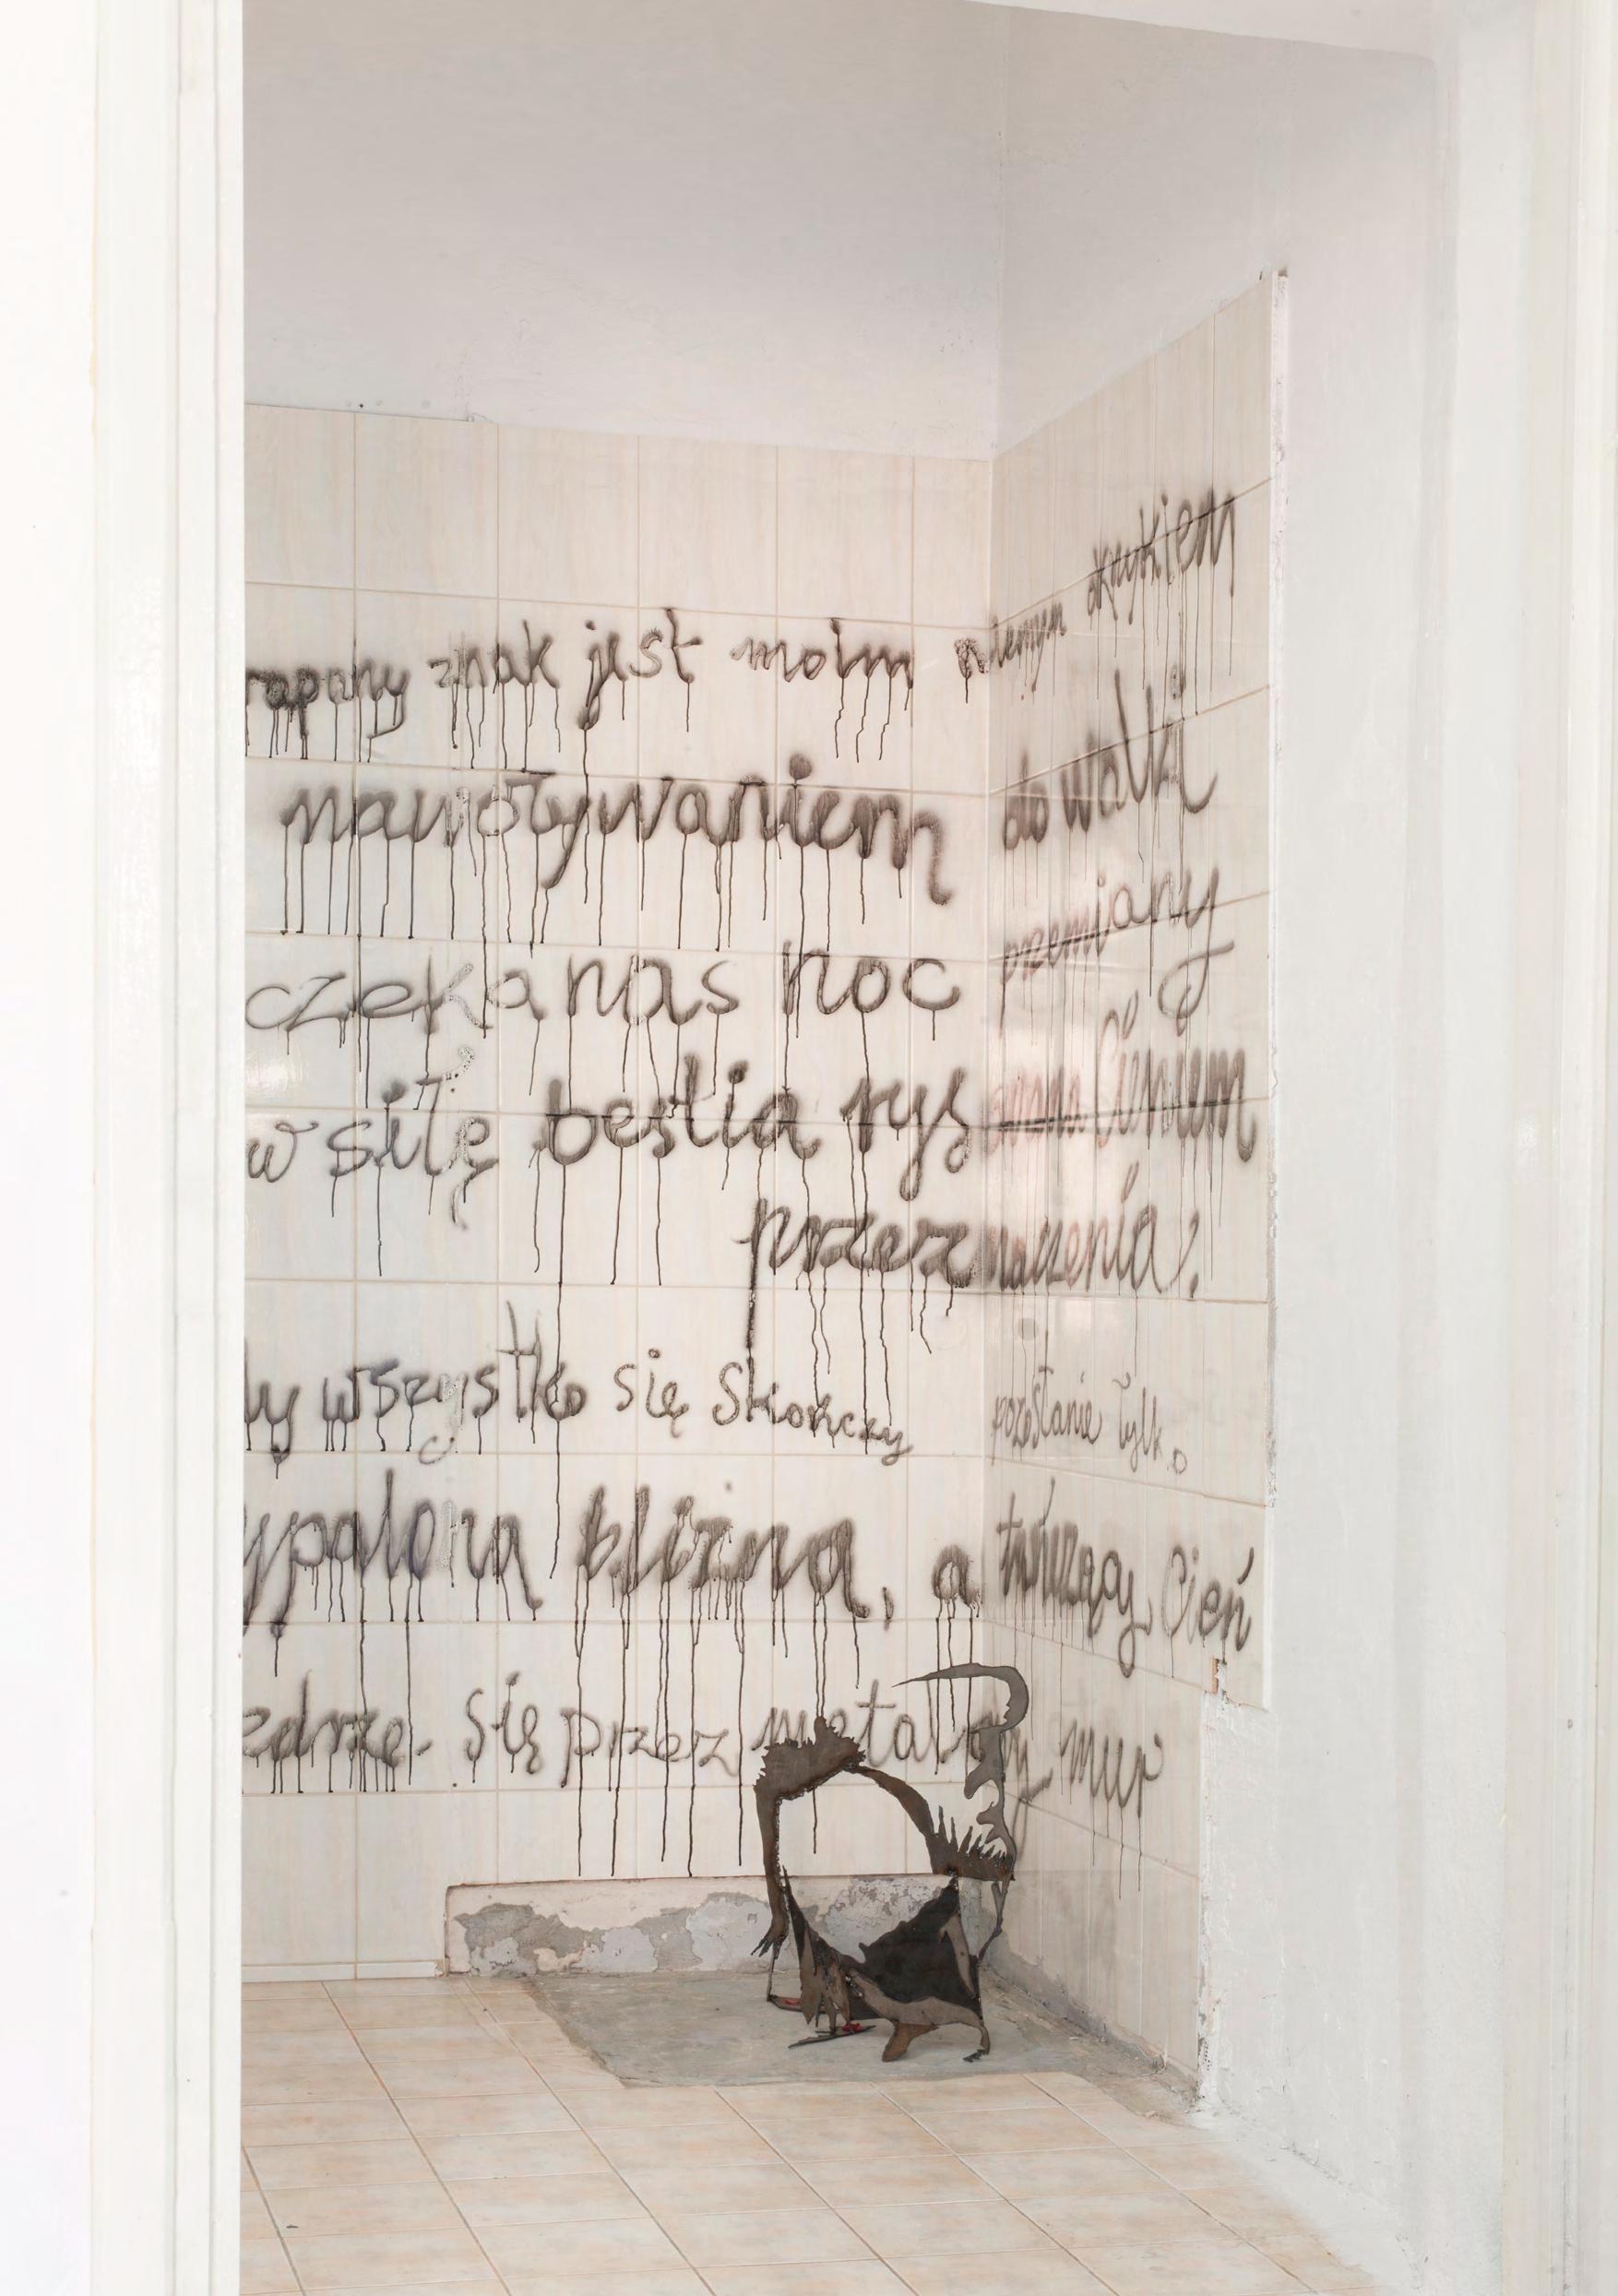 rapany znak jest moim niemym okrzykiem
nawoływaniem do walki
czeka nas noc przemiany
w siłę bestia rysowana Cieniem
przeznaczenia.
dy wszystko się skończy pozostanie tylko
ypalona blizna, a twórczy Cień
edrze się przez metalowy mur